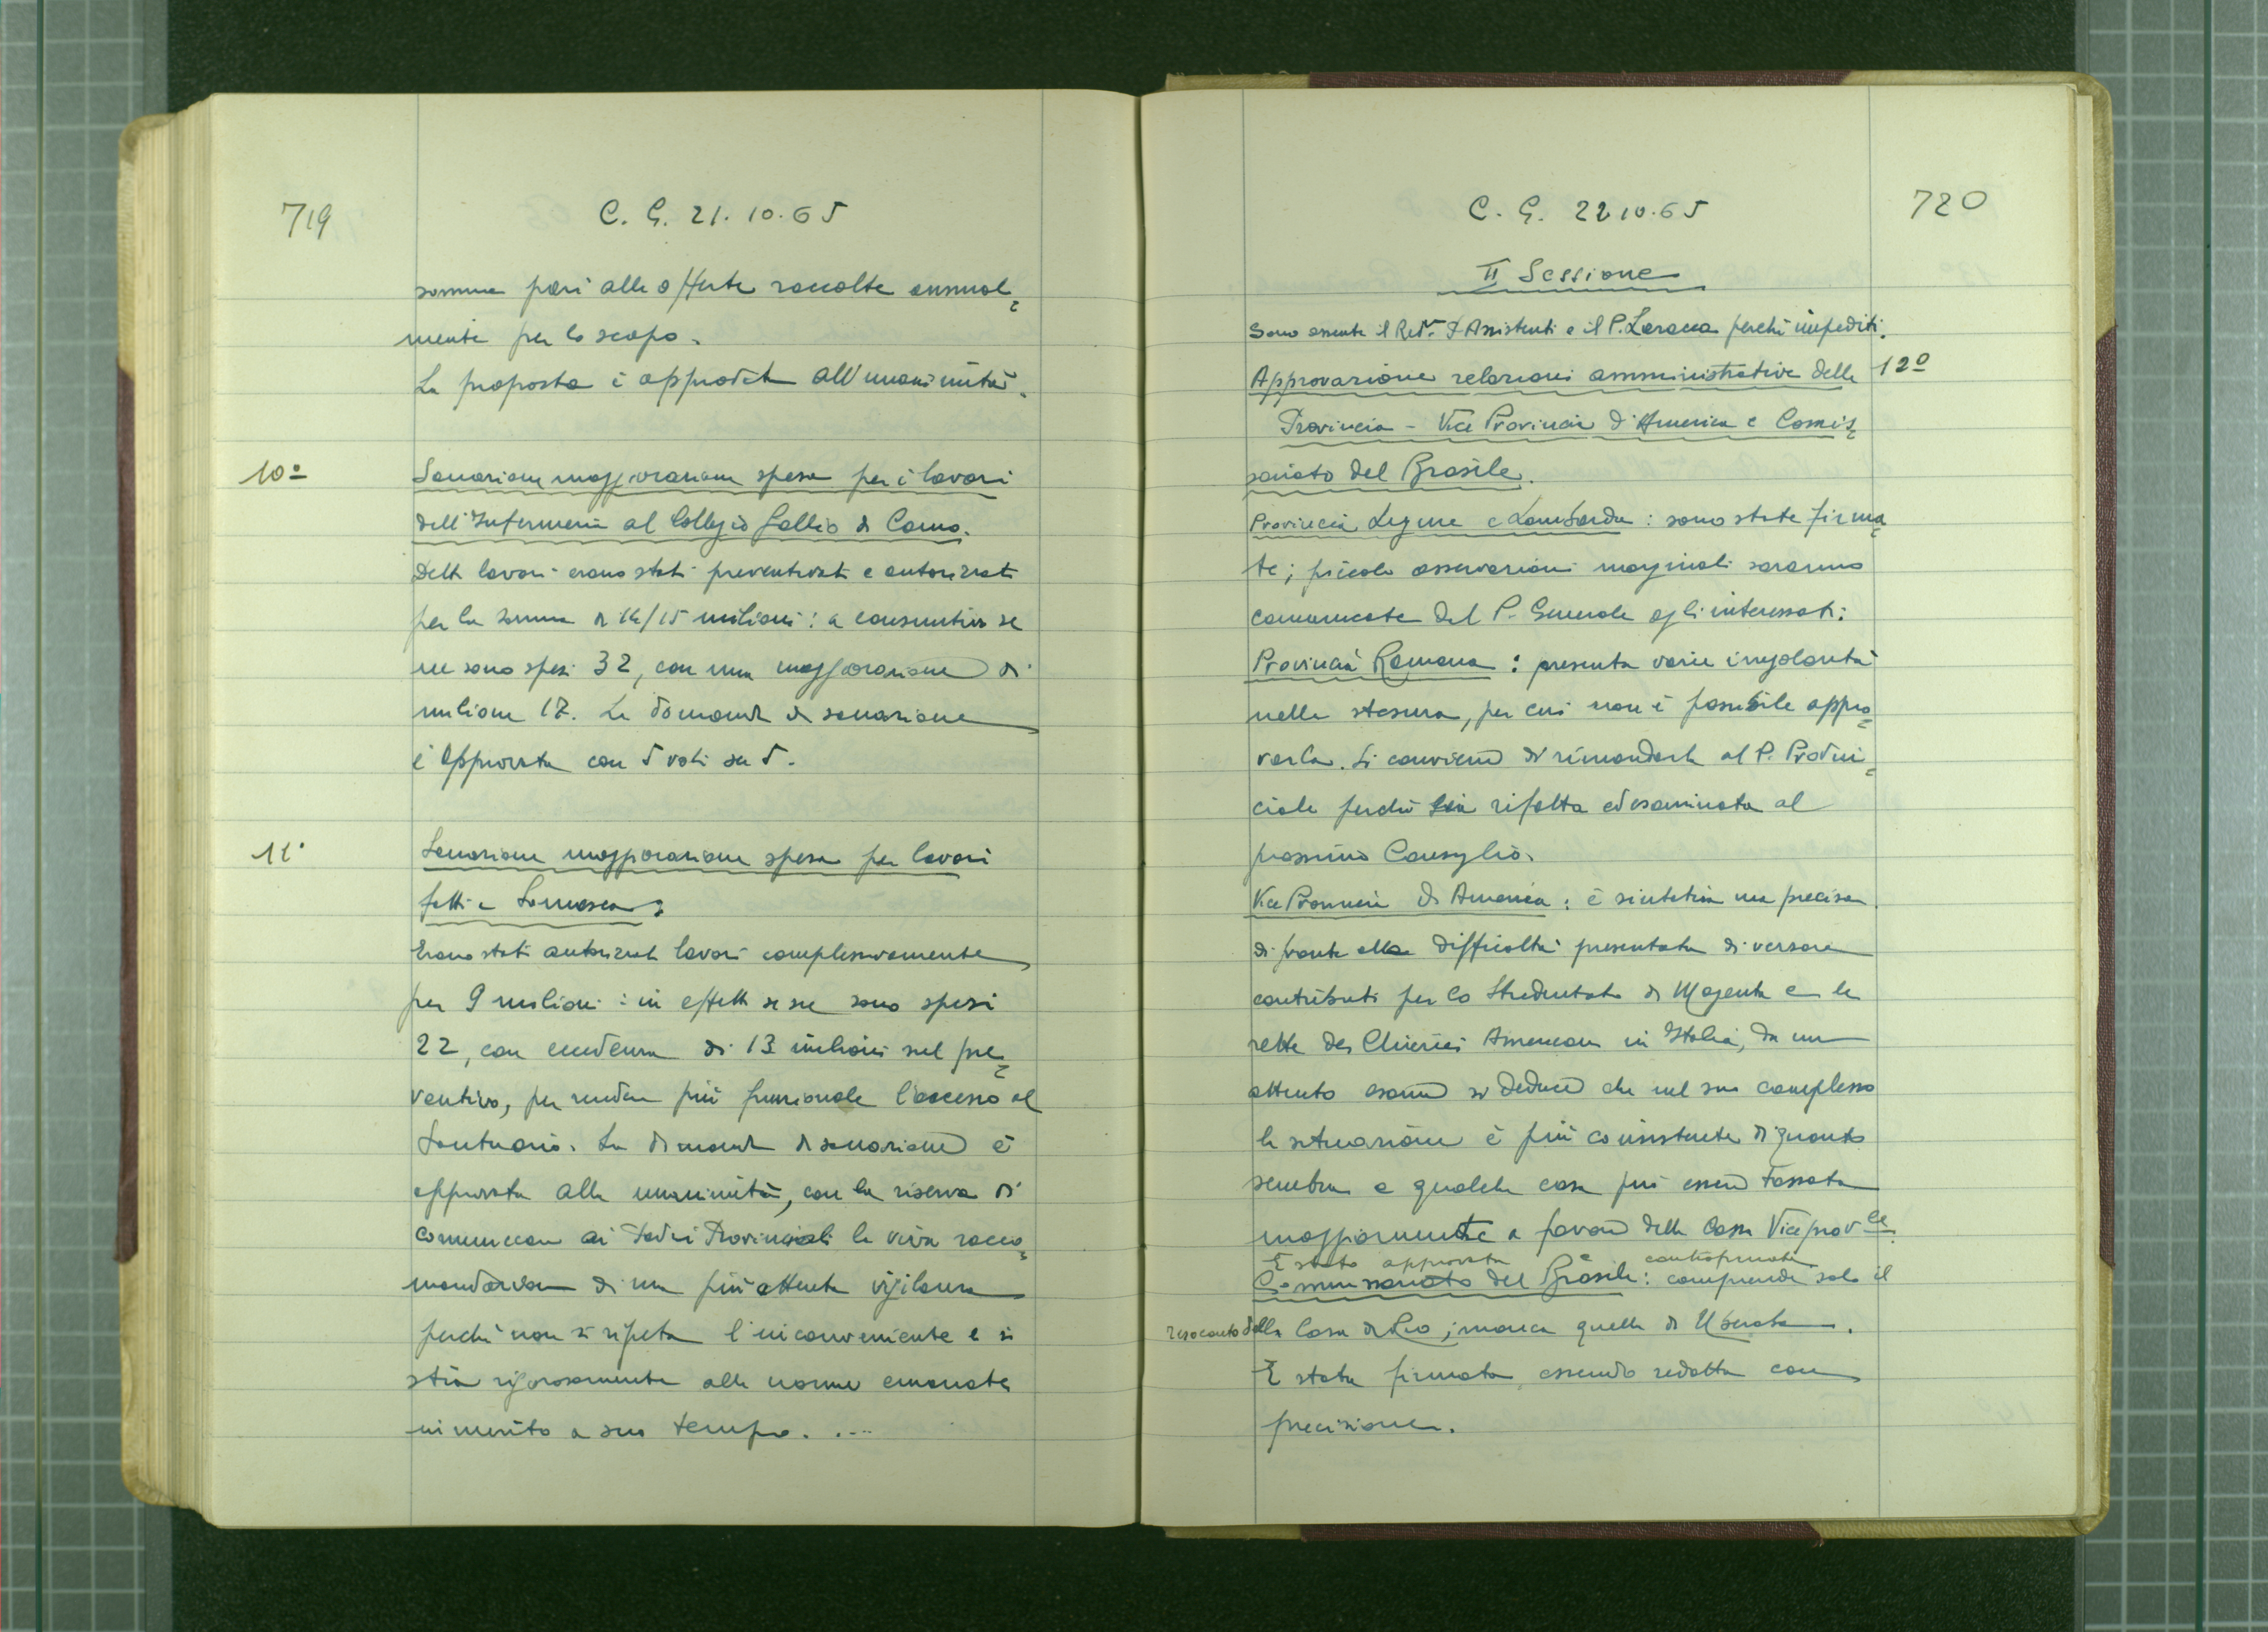 719
C. G. 21.10.65
somma pari alle offerte raccolte annual=
mente per lo scopo.
La proposta è approvata all'unanimità.
10º
Sanazione maggiorazione spesa per i lavori
dell'Infermeria al Collegio Gallio di Como.
Detti lavori erano stati preventivati e autorizzati
per la somma di 14/15 milioni: a consuntivo se
ne sono spesi 32, con una maggiorazione di
milioni 17. La domanda di sanazione
è approvata con 5 voti su 5.
11º
Sanazione maggiorazione spesa per lavori
fatti a Somasca:
Erano stati autorizzati lavori complessivamente
per 9 milioni: in effetti se ne sono spesi
22, con eccedenza di 13 milioni sul pre=
ventivo, per rendere più funzionale l'accesso al
Santuario. La domanda di sanazione è
approvata alla unanimità, con la riserva di
comunicare ai Padri Provinciali la viva racco=
mandazione di una più attenta vigilanza
perché non si ripeta l'inconveniente e si
stia rigorosamente alle norme emanate
in merito a suo tempo. . --
720
C. G. 22 10.65
II Sessione
Sono assente il Rev. P. Assistenti e il P. Laracca perché impediti.
12º
Approvazione relazioni amministrative delle
Provincia - Vice Provincia d'America e Comis=
sariato del Brasile.
Provincia Ligure e Lombarda: sono state firma=
te; piccole osservazioni marginali saranno
comunicate dal P. Generale agli interessati:
Provincia Romana: presenta varie irregolarità
nella stesura, per cui non è possibile appro=
varla. Si conviene di rimandarla al P. Provin=
ciale perché sia rifatta ed esaminata al
prossimo Consiglio.
Vice Provincia di America: è sintetica ma precisa.
di fronte alla difficoltà presentata di versare
contributi per lo Studentato di Magenta e le
rette dei Chierici Americani in Italia, da un
attento esame si deduce che nel suo complesso
la situazione è più consistente di quanto
sembra e qualche casa può essere tassata
maggiormente a favore della Cassa Viceprov.le.
È stata approvata e controfirmata
Commissariato del Brasile: comprende solo il
resoconto della Casa di Rio; manca quella di Uberaba.
È stata firmata, essendo redatta con
precisione.